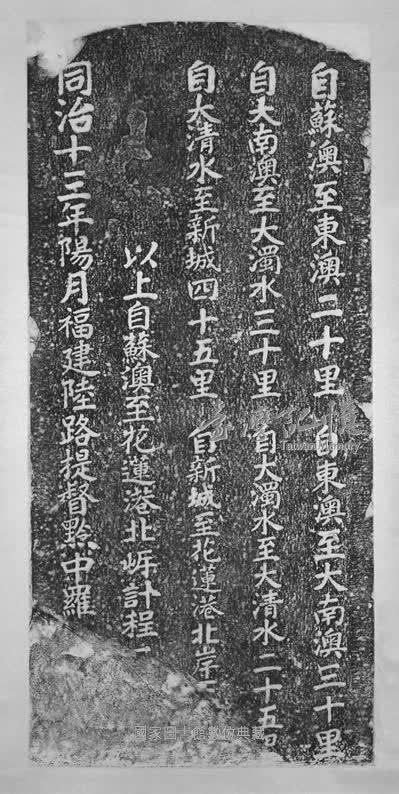 自蘇澳至東澳二十里　自東澳至大南澳三十里
自大南澳至大濁水三十里　自大濁水至大清水二十五
自大清水至新城四十五里　自新城至花蓮港北岸
以上自蘇澳至花蓮港北岍計程
同治十三年陽月福建陸路提督黔中羅
臺灣記憶
Taiwan Memory
國家圖書館數位典藏